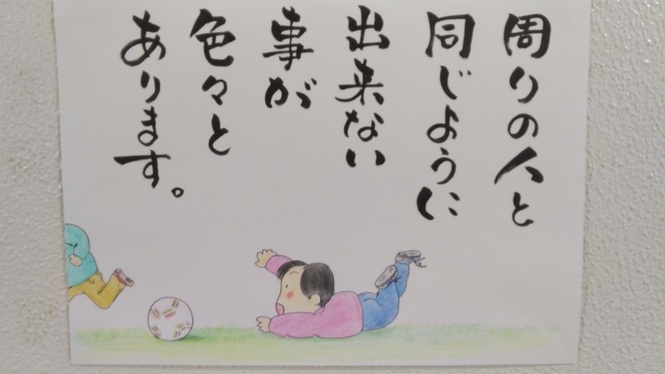 周りの人と
同じように
出来ない
事が
色々と
あります。